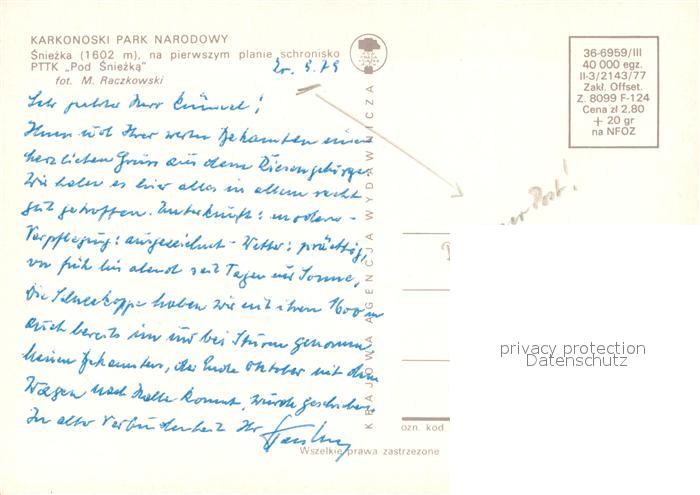 KARKONOSKI PARK NARODOWY
Śnieżka (1602 m), na pierwszym planie schronisko
PTTK „Pod Śnieżką”
fot. M. Raczkowski
9.79
Sehr geehrter Herr !
Ihnen und Ihren werten Bekannten einen
herzlichen Gruss aus dem Riesengebirge.
Wir haben es hier alles in allem recht
gut getroffen. Unterkunft: modern -
Verpflegung: ausgezeichnet - Wetter: prächtig,
von früh bis abend seit Tagen nur Sonne,
Die Schneekoppe haben wir mit ihren 1600 m
auch bereits im und bei Sturm genommen
meinen Bekannten, der Ende Oktober mit dem
Wagen nach Halle kommt, wurde geschrieben.
In alter Verbundenheit Ihr
KRAJOWA AGENCJA WYDAWNICZA
36-6959/III
40 000 egz.
II-3/2143/77
Zakł. Offset.
Z. 8099 F-124
Cena zł 2,80
+ 20 gr
na NFOZ
Post!
privacy protection
Datenschutz
ozn. kod.
Wszelkie prawa zastrzeżone